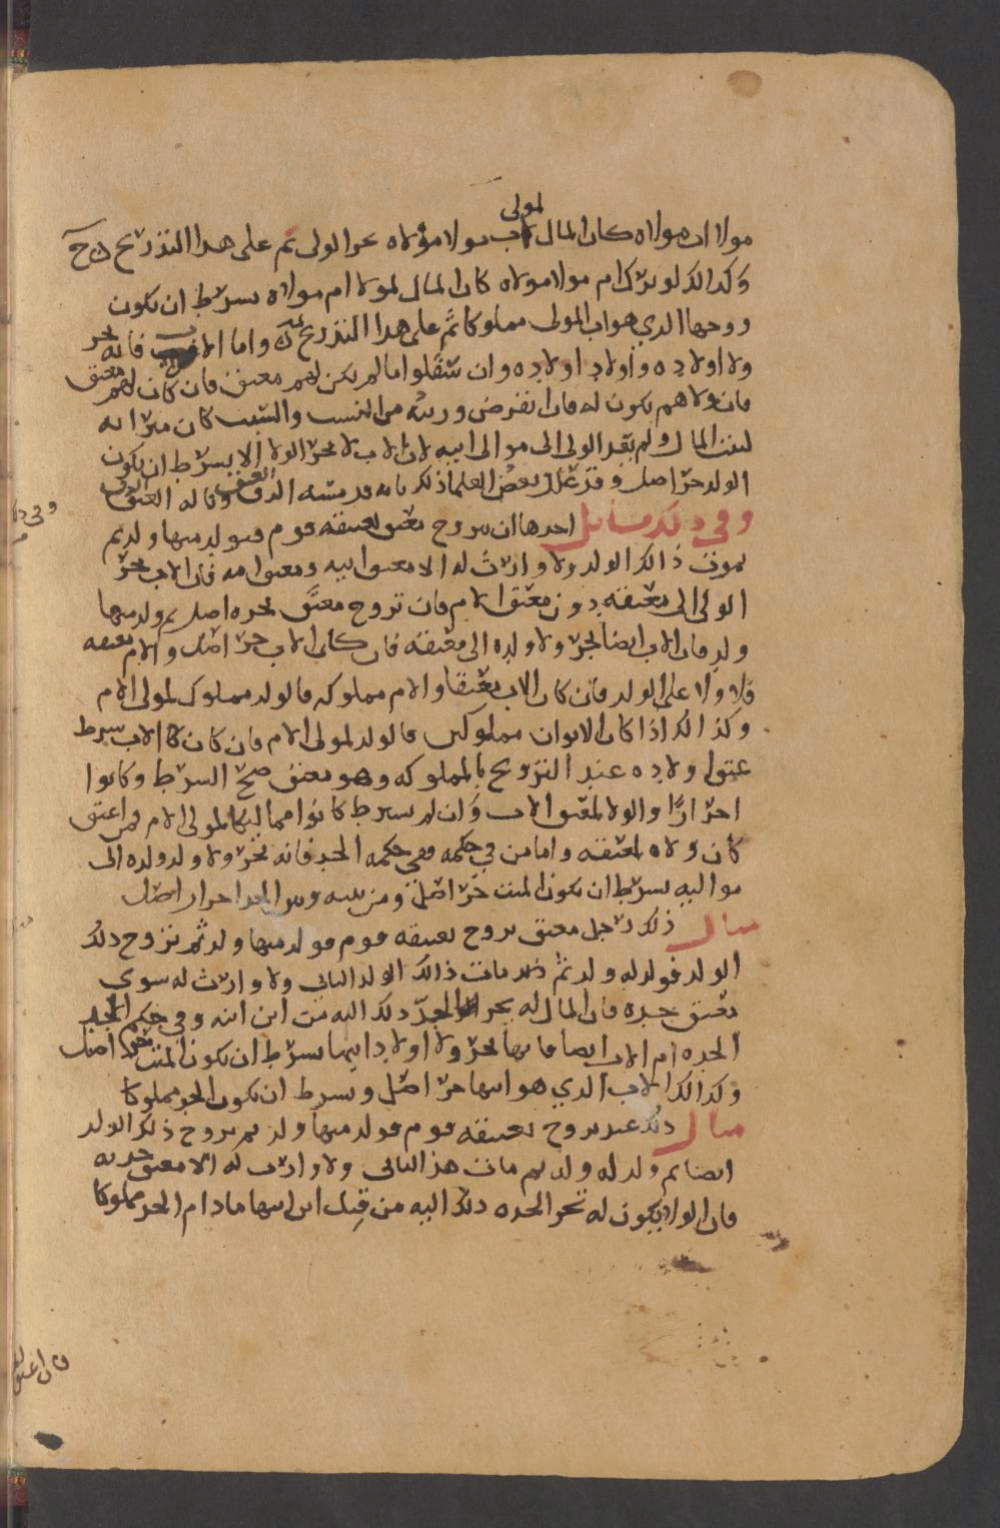 لمولى
مولا ان مولاه كان المال لاب مولا مولاه بحر الولى ثم على هدا التدريج
وكدالك لو ترك ام مولا مولاه كان المال لمولا ام مولاه بسرط ان يكون
زوجها الدي هو اب المولى مملوكا ثم على هدا التدريج واما الاب فانه يجر
ولا اولاده واولاد اولاده وان سفلوا ما لم يكن لهم معتق فان كان لهم معتق
فان ولاهم يكون له فان انقرض ورثته من النسب والسبب كان ميراثه
لبيت المال ولم يعد الولى الى موالى ابيه لان الاب لا يجر الولا الا بسرط ان يكون
الولد حر اصل وقد علل بعض العلما ذلك بانه قد مسه الرق
وفي ذلك مسايل احدها ان يتزوج معتق بعتيقه قوم فيولد منها ولد ثم
يموت ذالك الولد ولا وارث له الا معتق ابيه ومعتق امه فان الاب يجر
الولى الى معتقه دون معتق الام فان تزوج معتق بحره اصل ثم ولد منها
ولد فان الاب ايضا يجر ولا ولده الى معتقه فان كان الاب حر اصل والام معتقه
فلا ولا على الولد فان كان الاب معتقا والام مملوكه فالولد مملوك لمولى الام
وكذالك اذا كان الابوان مملوكين فالولد لمولى الام فان كان الاب سرط
عتق اولاده عند التزويج بالمملوكه وهو معتق صح السرط وكانوا
احرارا والولا لمعتق الاب وان لم يسرط كانوا مماليكا لمولى الام فمن اعتق
كان ولاه لمعتقه واما من في حكمه ففي حكمه الجد فانه يجر ولا ولد ولده الى
مواليه بسرط ان يكون الميت حر اصل ومن بينه وبين الجد احرار اصل
مثال ذلك رجل معتق تزوج بعتيقه قوم فولد منها ولد ثم تزوج ذلك
الولد فولد له ولد ثم مات ذالك الولد الثاني ولا وارث له سوى
معتق جده فان المال له يجر الجد ذلك اليه من ابن ابنه وفي حكم الجد
الجده ام الاب ايضا فانها تجر ولا اولاد ابنها بسرط ان يكون الميت حر اصل
وكدالك الاب الدي هو ابنها حر اصل وبسرط ان يكون الجد مملوكا
مثال ذلك عبد تزوج بعتيقه قوم فولد منها ولد ثم تزوج ذلك الولد
ايضا ثم ولد له ولد ثم مات هذا الثاني ولا وارث له الا معتق جدته
فان الولا يكون له تجر الجده ذلك اليه من قبل ابن ابنها مادام الجد مملوكا
فان اعتق